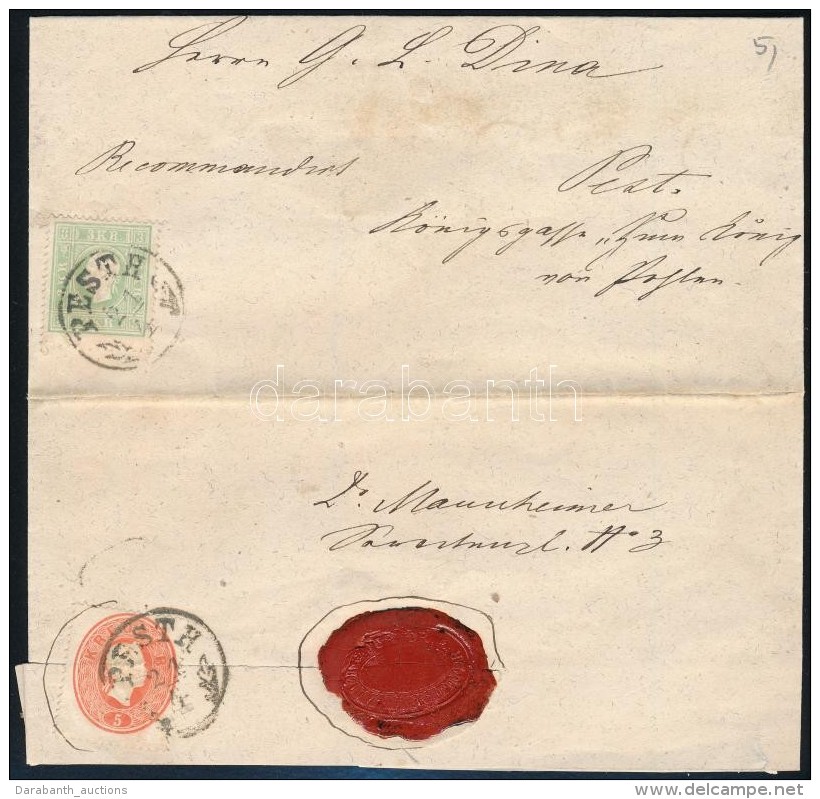 Herrn G. L. Dina
5
Recommandirt
Pest.
Königsgasse „Zum König
von Pohlen.
3 KR
PESTH
darabanth
Dr. Mannheimer
No 3
PESTH
KR
5
Darabanth_auctions
©delcampe.net